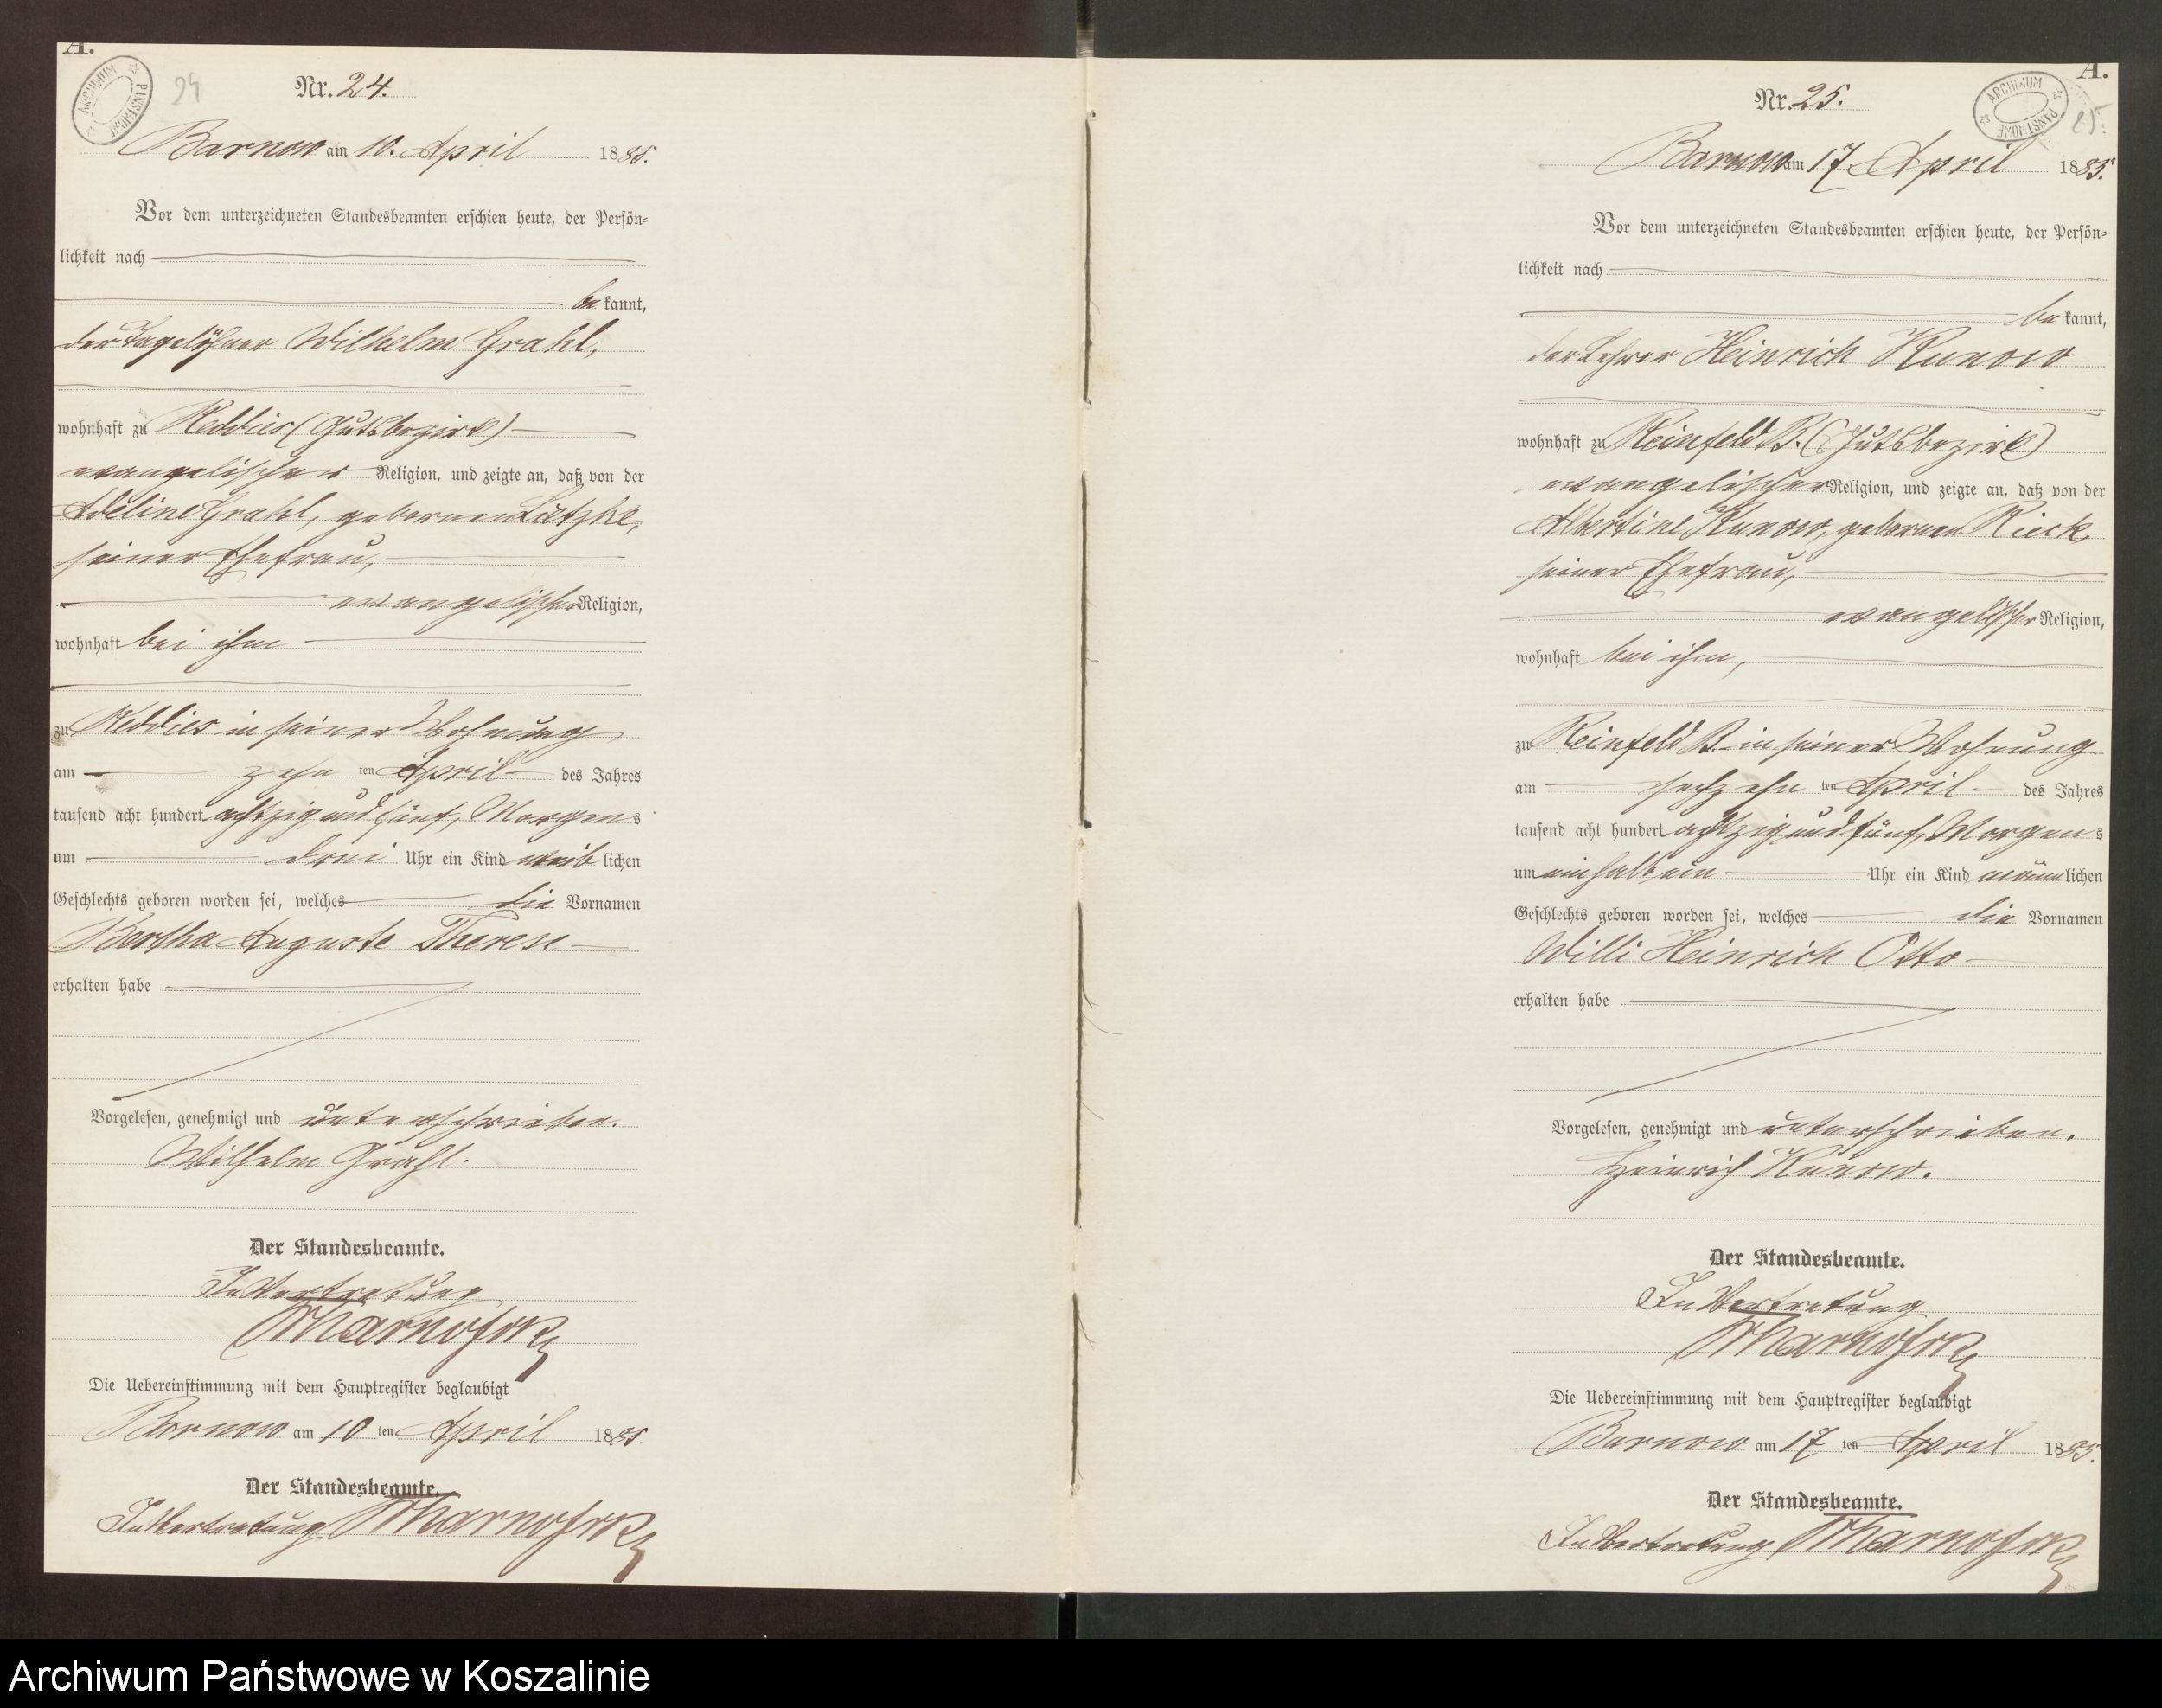 A.
ARCHIWUM PAŃSTWOWE
24
Nr. 24.
Barnow am 10. April 1885.
Vor dem unterzeichneten Standesbeamten erschien heute, der Persön=
lichkeit nach
be kannt,
der Tagelöhner Wilhelm Grahl,
wohnhaft zu Reddies (Gutsbezirk)
evangelischer Religion, und zeigte an, daß von der
Adeline Grahl, geborenen Lietzke,
seiner Ehefrau,
evangelischer Religion,
wohnhaft bei ihm
zu Reddies in seiner Wohnung
am zehn ten April des Jahres
tausend acht hundert achtzig und fünf, Morgens
um drei Uhr ein Kind weib lichen
Geschlechts geboren worden sei, welches die Vornamen
Bertha Auguste Therese
erhalten habe
Vorgelesen, genehmigt und unterschrieben.
Wilhelm Grahl.
Der Standesbeamte.
In Vertretung
Die Uebereinstimmung mit dem Hauptregister beglaubigt
Barnow am 10 ten April 1885.
Der Standesbeamte.
In Vertretung
A.
ARCHIWUM PAŃSTWOWE
25
Nr. 25.
Barnow am 17. April 1885.
Vor dem unterzeichneten Standesbeamten erschien heute, der Persön=
lichkeit nach
be kannt,
der Lehrer Heinrich Kunow
wohnhaft zu Reinfeld B. (Gutsbezirk)
evangelischer Religion, und zeigte an, daß von der
Albertine Kunow, geborenen Rieck,
seiner Ehefrau,
evangelischer Religion,
wohnhaft bei ihm,
zu Reinfeld B. in seiner Wohnung
am sechzehn ten April des Jahres
tausend acht hundert achtzig und fünf, Morgens
um ein halb ein Uhr ein Kind männlichen
Geschlechts geboren worden sei, welches die Vornamen
Willi Heinrich Otto
erhalten habe
Vorgelesen, genehmigt und unterschrieben.
Heinrich Kunow.
Der Standesbeamte.
In Vertretung
Die Uebereinstimmung mit dem Hauptregister beglaubigt
Barnow am 17 ten April 1885.
Der Standesbeamte.
In Vertretung
Archiwum Państwowe w Koszalinie